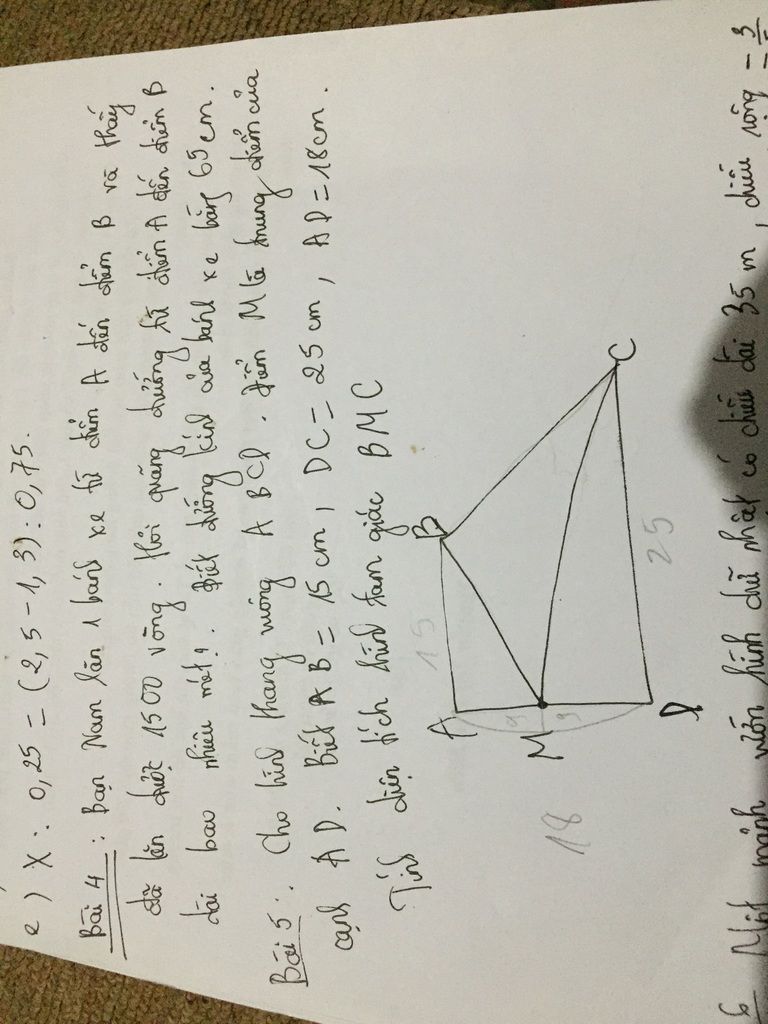 e) X : 0,25 = (2,5 - 1,3) : 0,75.
Bài 4 : Bạn Nam lăn 1 bánh xe từ điểm A đến điểm B và thấy
đã lăn được 1500 vòng. Hỏi quãng đường từ điểm A đến điểm B
dài bao nhiêu mét?. Biết đường kính của bánh xe bằng 65 cm.
Bài 5 : Cho hình thang vuông ABCD. Điểm M là trung điểm của
cạnh AD. Biết AB = 15 cm, DC = 25 cm, AD = 18 cm.
Tính diện tích hình tam giác BMC
A
15
B
9
M
9
18
D
25
C
6 Một mảnh vườn hình chữ nhật có chiều dài 35 m, chiều rộng =